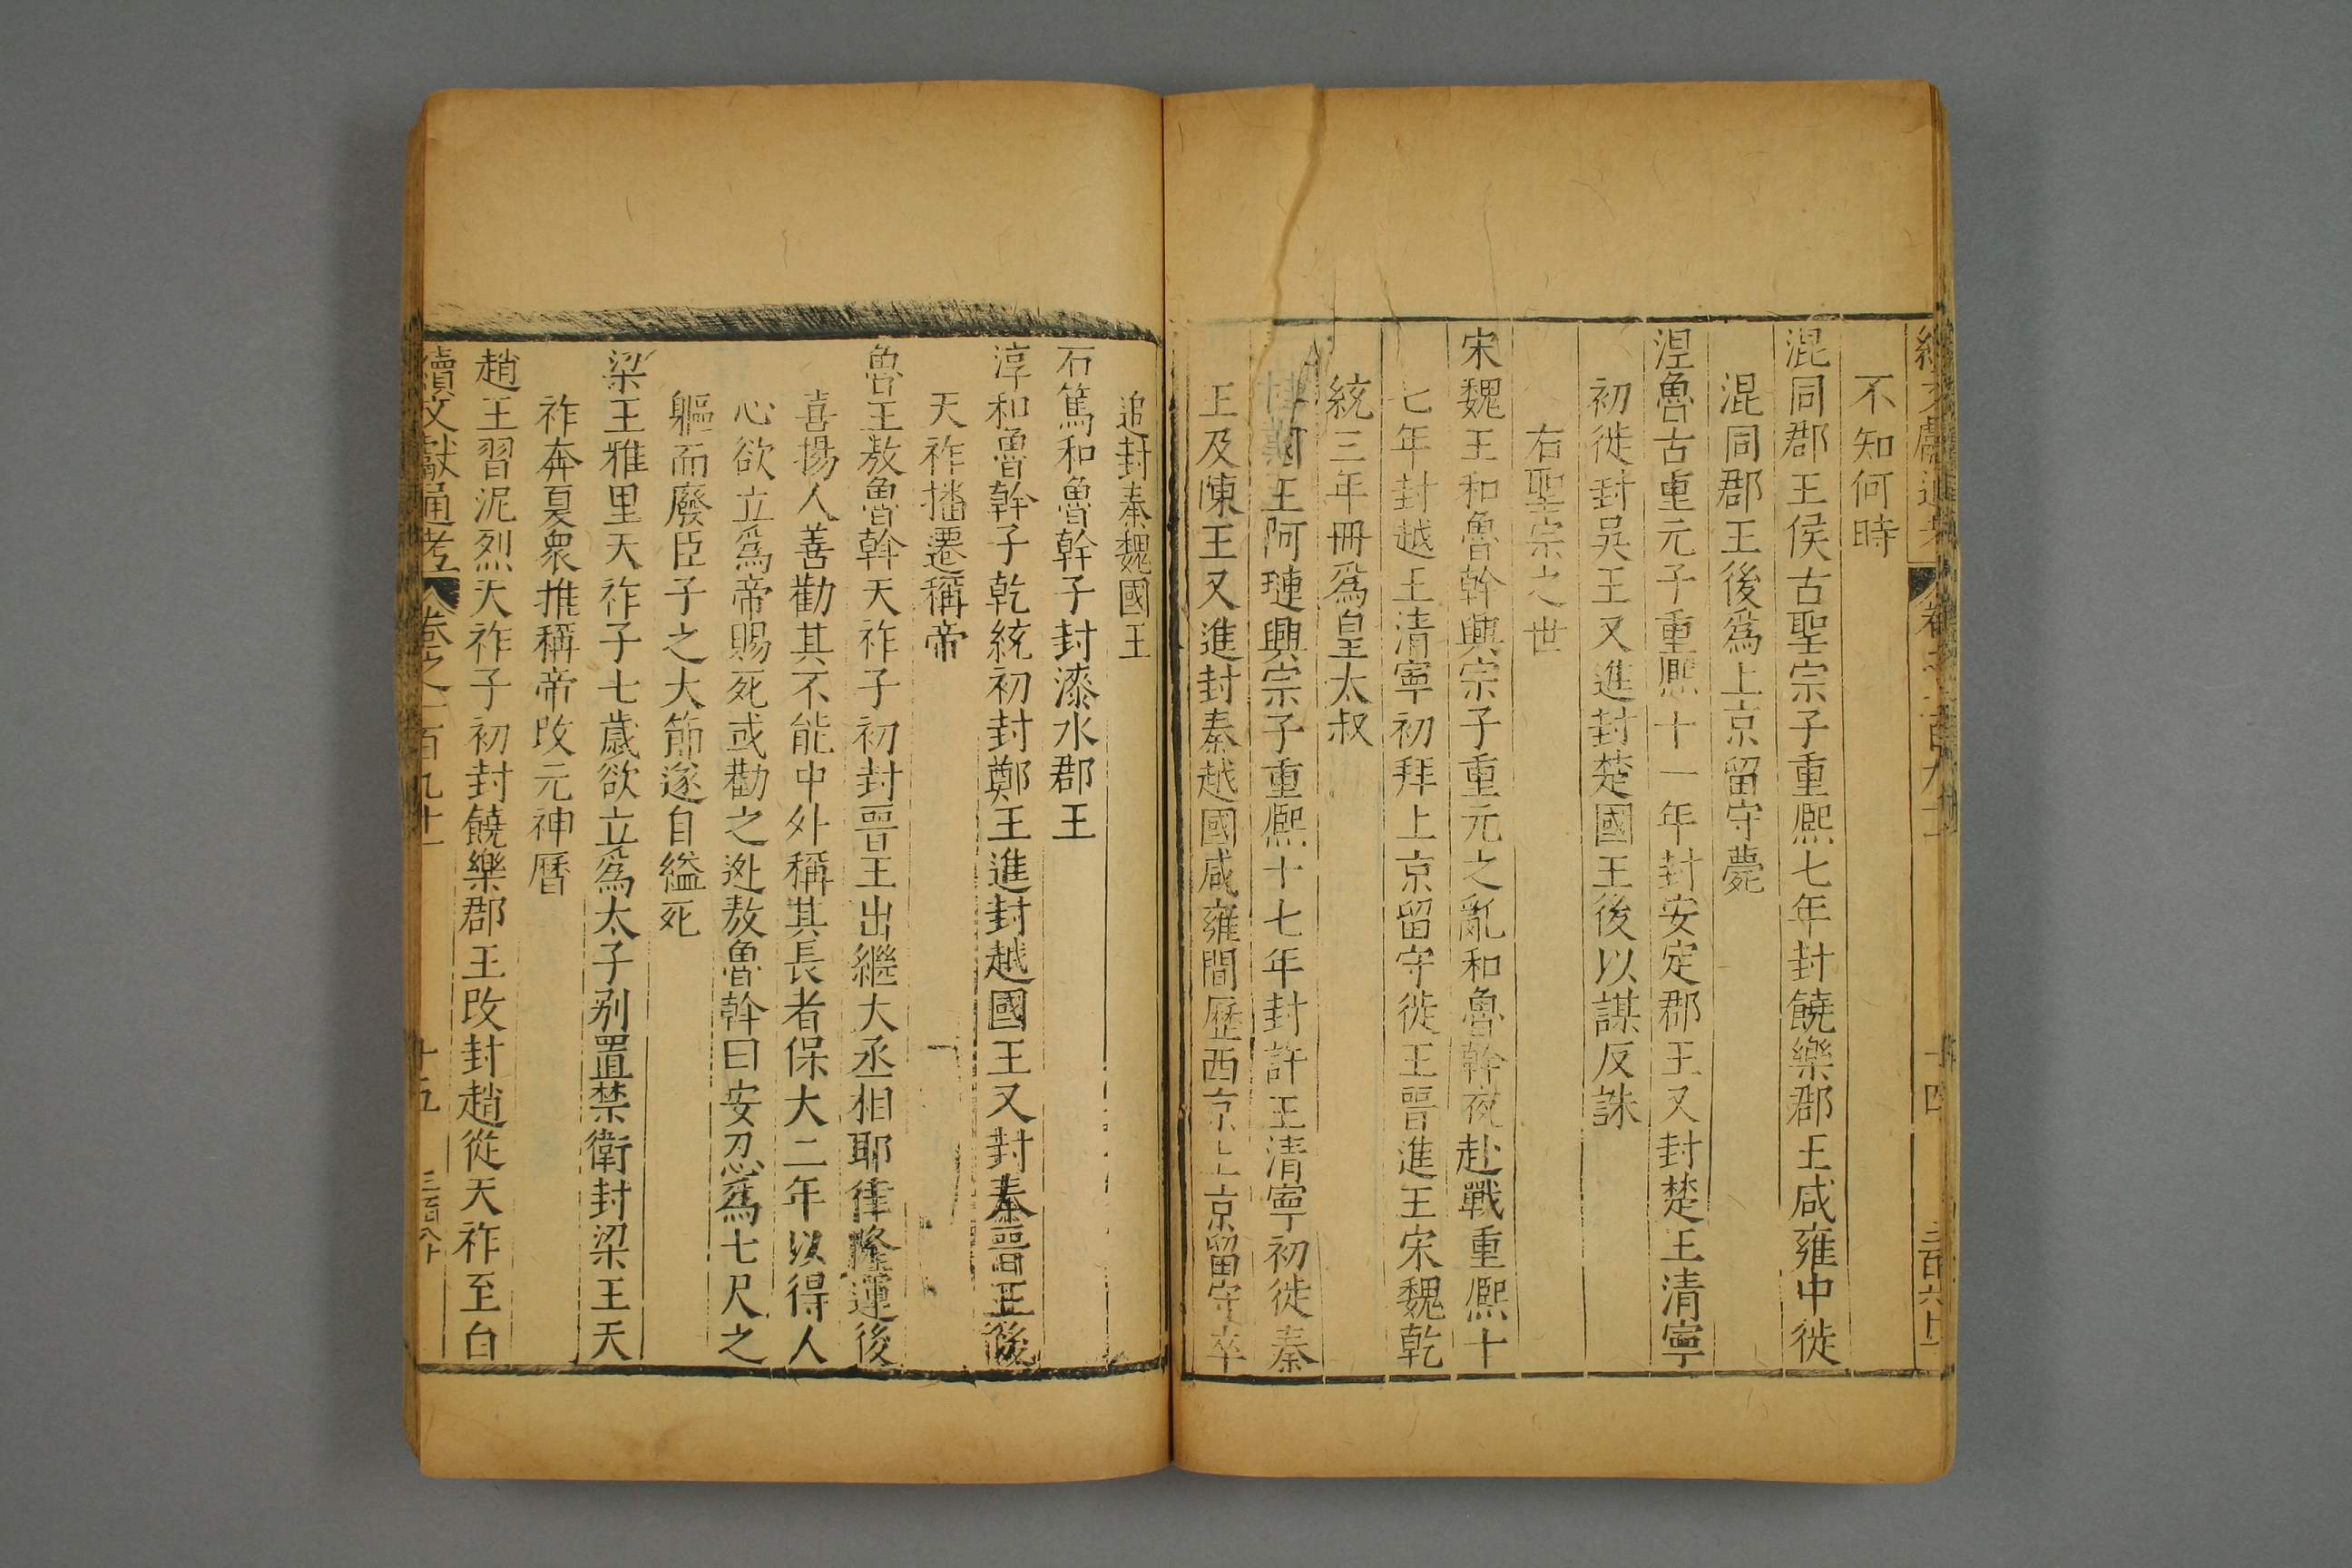 續文獻通考 卷之一百九十一 十四
不知何時
混同郡王侯古聖宗子重熈七年封饒樂郡王咸雍中徙
混同郡王後爲上京留守薨
涅魯古重元子重熈十一年封安定郡王又封楚王清寧
初徙封吳王又進封楚國王後以謀反誅
右聖宗之世
宋魏王和魯斡興宗子重元之亂和魯斡夜赴戰重熈十
七年封越王清寧初拜上京留守徙王晉進王宋魏乾
統三年冊爲皇太叔
王阿璉興宗子重熈十七年封許王清寧初徙秦
王及陳王又進封秦越國咸雍間歷西京上京留守卒
追封秦魏國王
石篤和魯斡子封漆水郡王
淳和魯斡子乾統初封鄭王進封越國王又封秦晉王後
天祚播遷稱帝
魯王敖魯斡天祚子初封晉王出繼大丞相耶律隆運後
喜揚人善勸其不能中外稱其長者保大二年以得人
心欲立爲帝賜死或勸之逃敖魯斡曰安忍爲七尺之
軀而廢臣子之大節遂自縊死
梁王雅里天祚子七歲欲立爲太子别置禁衛封梁王天
祚奔夏衆推稱帝改元神曆
趙王習泥烈天祚子初封饒樂郡王改封趙從天祚至白
續文獻通考 卷之一百九十一 十五